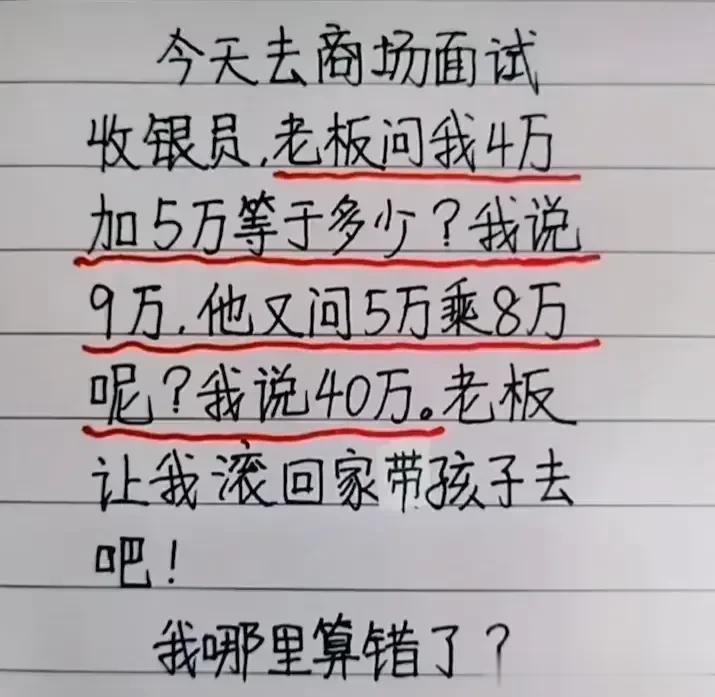 今天去商场面试
收银员,老板问我4万
加5万等于多少?我说
9万,他又问5万乘8万
呢?我说40万。老板
让我滚回家带孩子去
吧!
我哪里算错了?